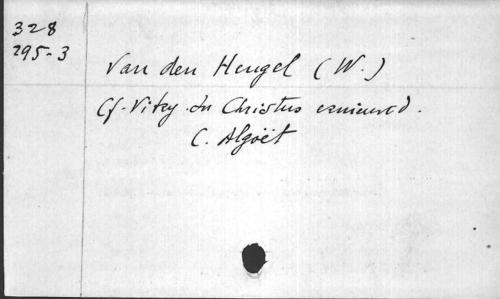 328
295-3
Van den Hengel (W.)
Cf. Vitry. In Christus
C. Algoët